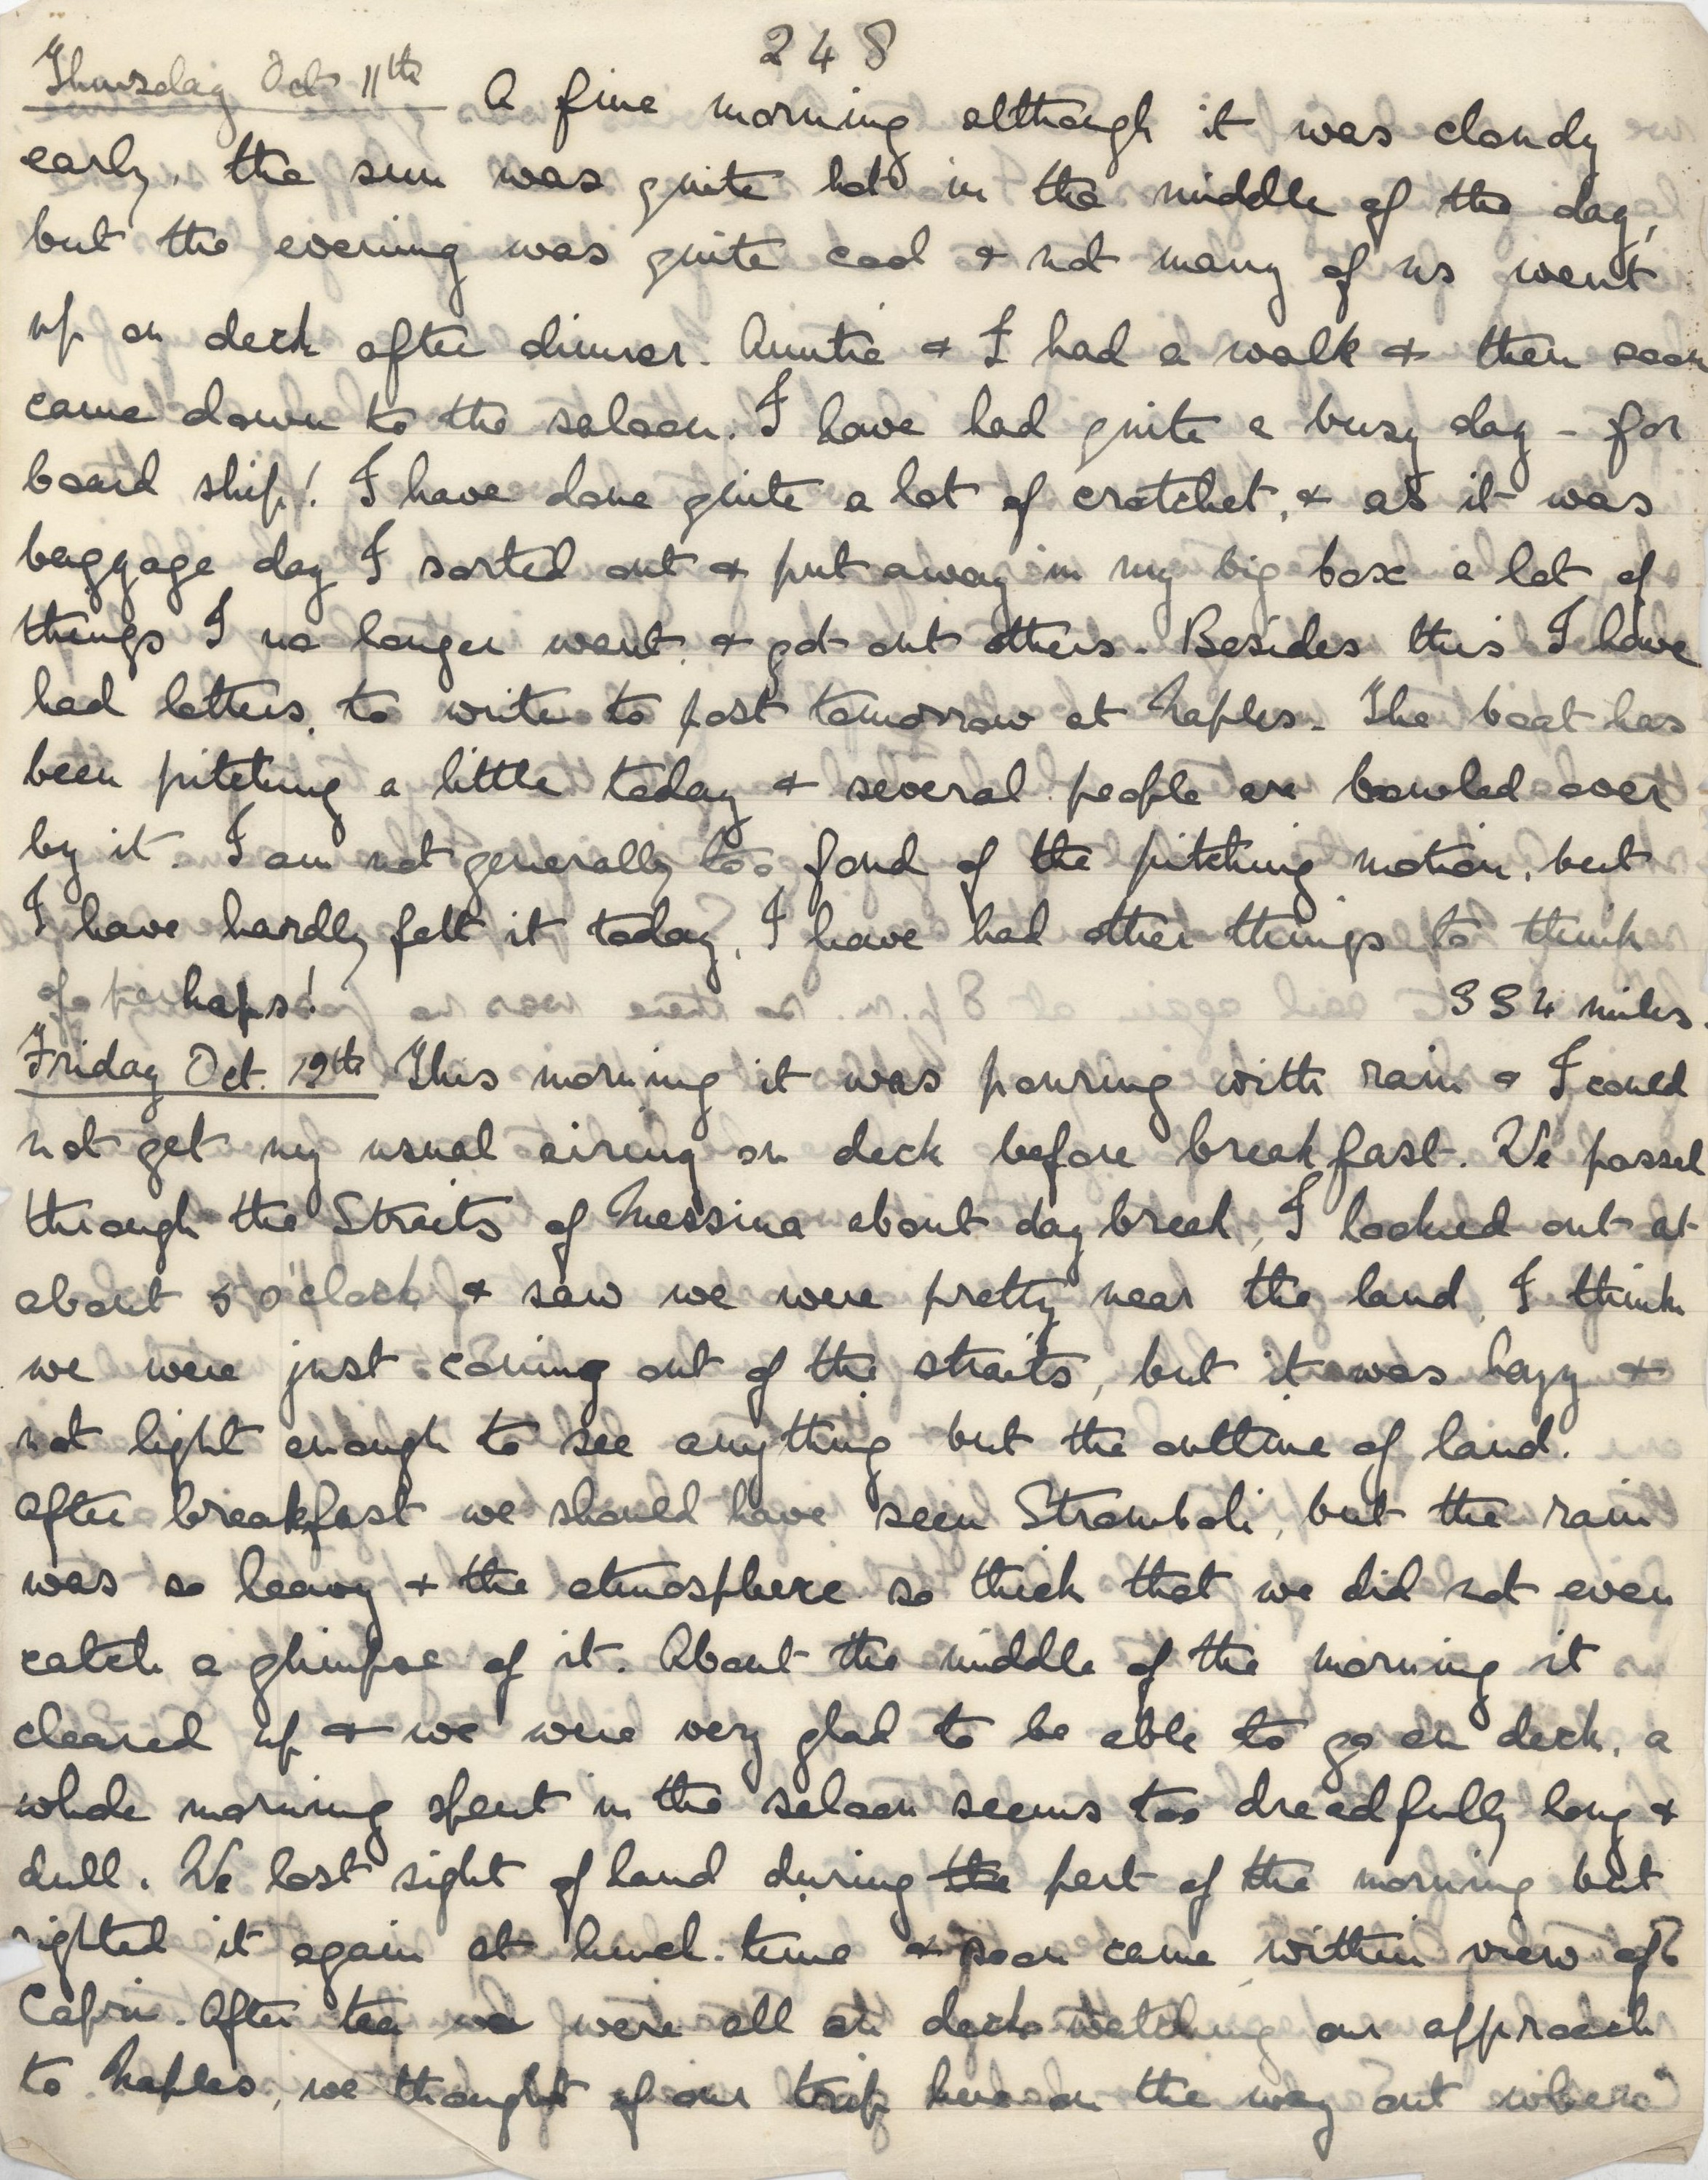 248
Thursday Oct 11th A fine morning although it was cloudy
early, the sun was quite hot in the middle of the day,
but the evening was quite cool & not many of us went
up on deck after dinner. Auntie & I had a walk & then soon
came down to the saloon. I have had quite a busy day - for
board ship! I have done quite a lot of crotchet, & as it was
baggage day I sorted out & put away in my big box a lot of
things I no longer want, & got out others. Besides this I have
had letters, to write to post tomorrow at Naples. The boat has
been pitching a little today & several people are bowled over
by it. I am not generally too fond of the pitching motion, but
I have hardly felt it today, I have had other things to think
of perhaps!
334 miles.
Friday Oct. 12th This morning it was pouring with rain & I could
not get my usual airing on deck before breakfast. We passed
through the Straits of Messina about day break, I looked out at
about 5 o'clock & saw we were pretty near the land, I think
we were just coming out of the straits, but it was hazy &
not light enough to see anything but the outline of land.
After breakfast we should have seen Stromboli, but the rain
was so heavy & the atmosphere so thick that we did not even
catch a glimpse of it. About the middle of the morning it
cleared up & we were very glad to be able to go on deck, a
whole morning spent in the saloon seems too dreadfully long &
dull. We lost sight of land during the part of the morning but
sighted it again at lunch-time & soon came within view of
Capri. After tea we were all on deck watching our approach
to Naples, we thought of our trip here on the way out where